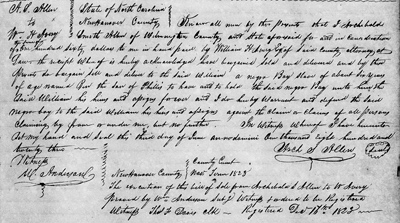 A. S. Allen State of North Carolina
to New Hanover County Know all men by these Presents that I Archibald
Wm H Ivey Smith Allen of Wilmington County and State aforesaid for and in consideration
of hundred sixty dollars to me in hand paid by William H Ivey Esq of said County attorney at
Law the receipt whereof is hereby acknowledged have bargained sold and delivered and by these
Presents do bargain sell and deliver to the said William a negro Boy slave of about six years
of age named the son of Phillis to have and to hold the said negro Boy unto him the
said William his heirs and assigns forever and I do hereby Warrant and defend the said
negro boy to the said William his heirs and assigns against the claim or claims of all Persons
claiming by from or under me, but no further. In Witness whereof I have hereunto
set my hand and seal this third day of June annodomini One thousand eight hundred and
twenty three Arch S Allen Seal
Witness
W. Anderson County Court
New Hanover County Term 1823
The execution of this bill of Sale from Archibald S Allen to W Ivey
proved by Wm Anderson Subg Witness & ordered to be Registered
Witness Thos F Davis Clk Registered Decr 1823